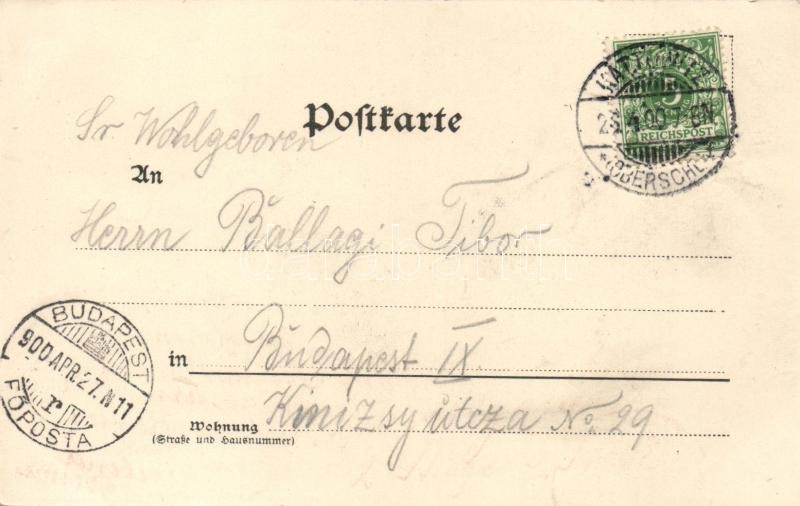 Postkarte
Sr. Wohlgeboren
An
Herrn Ballagi Tibor
in Budapest IX
Wohnung Kinizsy utcza No. 29
(Straße und Hausnummer)
REICHSPOST
5
(OBERSCHL.)
BUDAPEST
900 APR. 27. N 11
FŐPOSTA
darabanth